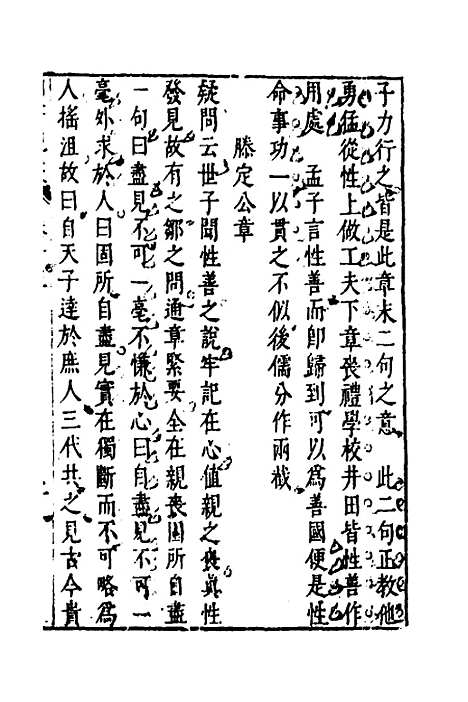 子力行之皆是此章末二句之意　此二句正教他
勇猛從性上做工夫下章喪禮學校井田皆性善作
用處　孟子言性善而卽歸到可以爲善國便是性
命事功一以貫之不似後儒分作兩截
滕定公章
疑問云世子聞性善之說牢記在心值親之喪眞性
發見故有之鄒之問通章緊要全在親喪固所自盡
一句曰盡見不可一毫不慊於心曰自盡見不可一
毫外求於人曰固所自盡見實在獨斷而不可略爲
人搖沮故曰自天子達於庶人三代共之見古今貴